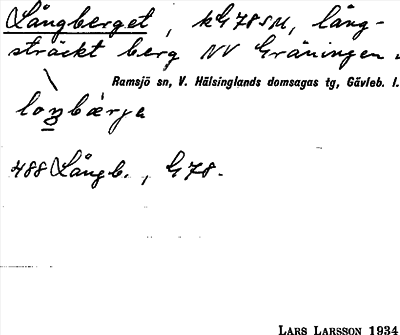 Långberget, kG78SM, lång-
sträckt berg NV Gråningen.
Ramsjö sn, V. Hälsinglands domsagas tg, Gävleb. l.
488 Långb., G78.
LARS LARSSON 1934